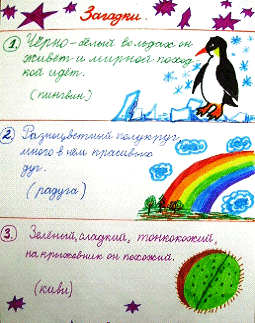 Загадки.
1. Чёрно-белый во льдах он
живёт и мирной поход
кой идёт.
(пингвин)
2. Разноцветный полукруг
много в нём красивых
дуг.
(радуга)
3. Зелёный, сладкий, тонкокожий,
на крыжовник он похожий.
(киви)